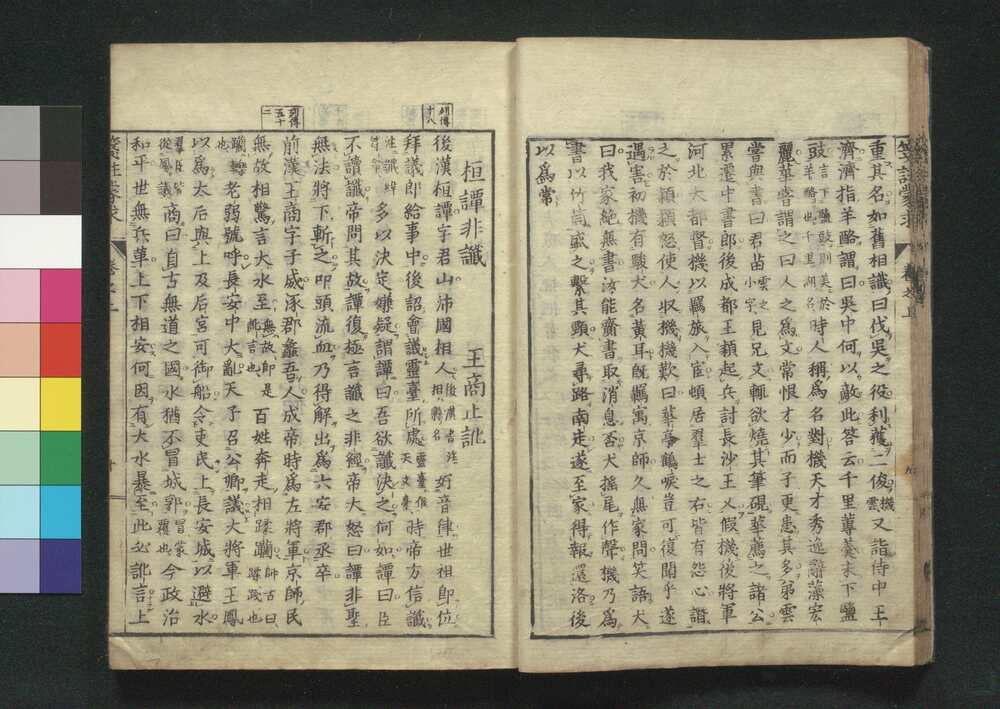 重其名如舊相識曰伐吳之役利獲二俊機雲又詣侍中王
濟濟指羊酪謂曰吳中何以敵此答云千里蓴羹未下鹽
豉時人稱爲名對機天才秀逸辭藻宏
麗華嘗謂之曰人之爲文常恨才少而子更患其多弟雲
嘗與書曰君苗見兄文輒欲燒其筆硯華薦之諸公
累遷中書郎後成都王穎起兵討長沙王乂假機後將軍
河北大都督機以羈旅入宦頓居羣士之右皆有怨心譖
之於穎穎怒使人收機機歎曰華亭鶴唳豈可復聞乎遂
遇害初機有駿犬名黃耳旣羈寓京師久無家問笑語犬
曰我家絶無書汝能齎書取消息否犬搖尾作聲機乃爲
書以竹筒盛之繫其頸犬尋路南走遂至家得報還洛後
以爲常
列傳十八
桓譚非讖 王商止訛
後漢桓譚字君山沛國相人好音律世祖卽位
拜議郎給事中後詔會議靈臺所處時帝方信讖
多以決定嫌疑謂譚曰吾欲讖決之何如譚曰臣
不讀讖帝問其故譚復極言讖之非經帝大怒曰譚非聖
無法將下斬之叩頭流血乃得解出爲六安郡丞卒
列傳五十二
前漢王商字子威涿郡蠡吾人成帝時爲左將軍京師民
無故相驚言大水至百姓奔走相蹂躪師古曰
老弱號呼長安中大亂天子召公卿議大將軍王鳳
以爲太后與上及后宮可御船令吏民上長安城以避水
商曰自古無道之國水猶不冒城郭今政治
和平世無兵革上下相安何因有大水一日暴至此必訛言上